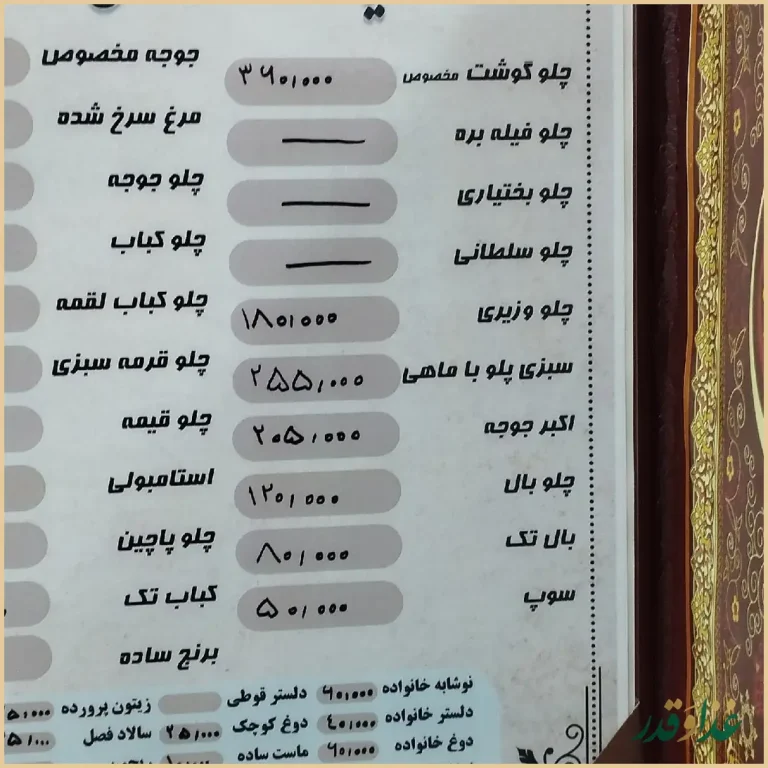 چلو گوشت مخصوص ۳۶۰,۰۰۰
چلو فیله بره —
چلو بختیاری —
چلو سلطانی —
چلو وزیری ۱۸۰,۰۰۰
سبزی پلو با ماهی ۲۵۵,۰۰۰
اکبر جوجه ۲۰۵,۰۰۰
چلو بال ۱۲۰,۰۰۰
بال تک ۸۰,۰۰۰
سوپ ۵۰,۰۰۰
جوجه مخصوص
مرغ سرخ شده
چلو جوجه
چلو کباب
چلو کباب لقمه
چلو قرمه سبزی
چلو قیمه
استامبولی
چلو پاچین
کباب تک
برنج ساده
نوشابه خانواده ۶۰,۰۰۰ دلستر قوطی زیتون پرورده
دلستر خانواده ۴۰,۰۰۰ دوغ کوچک ۲۵,۰۰۰ سالاد فصل
دوغ خانواده ۶۰,۰۰۰ ماست ساده
غذا و قدر